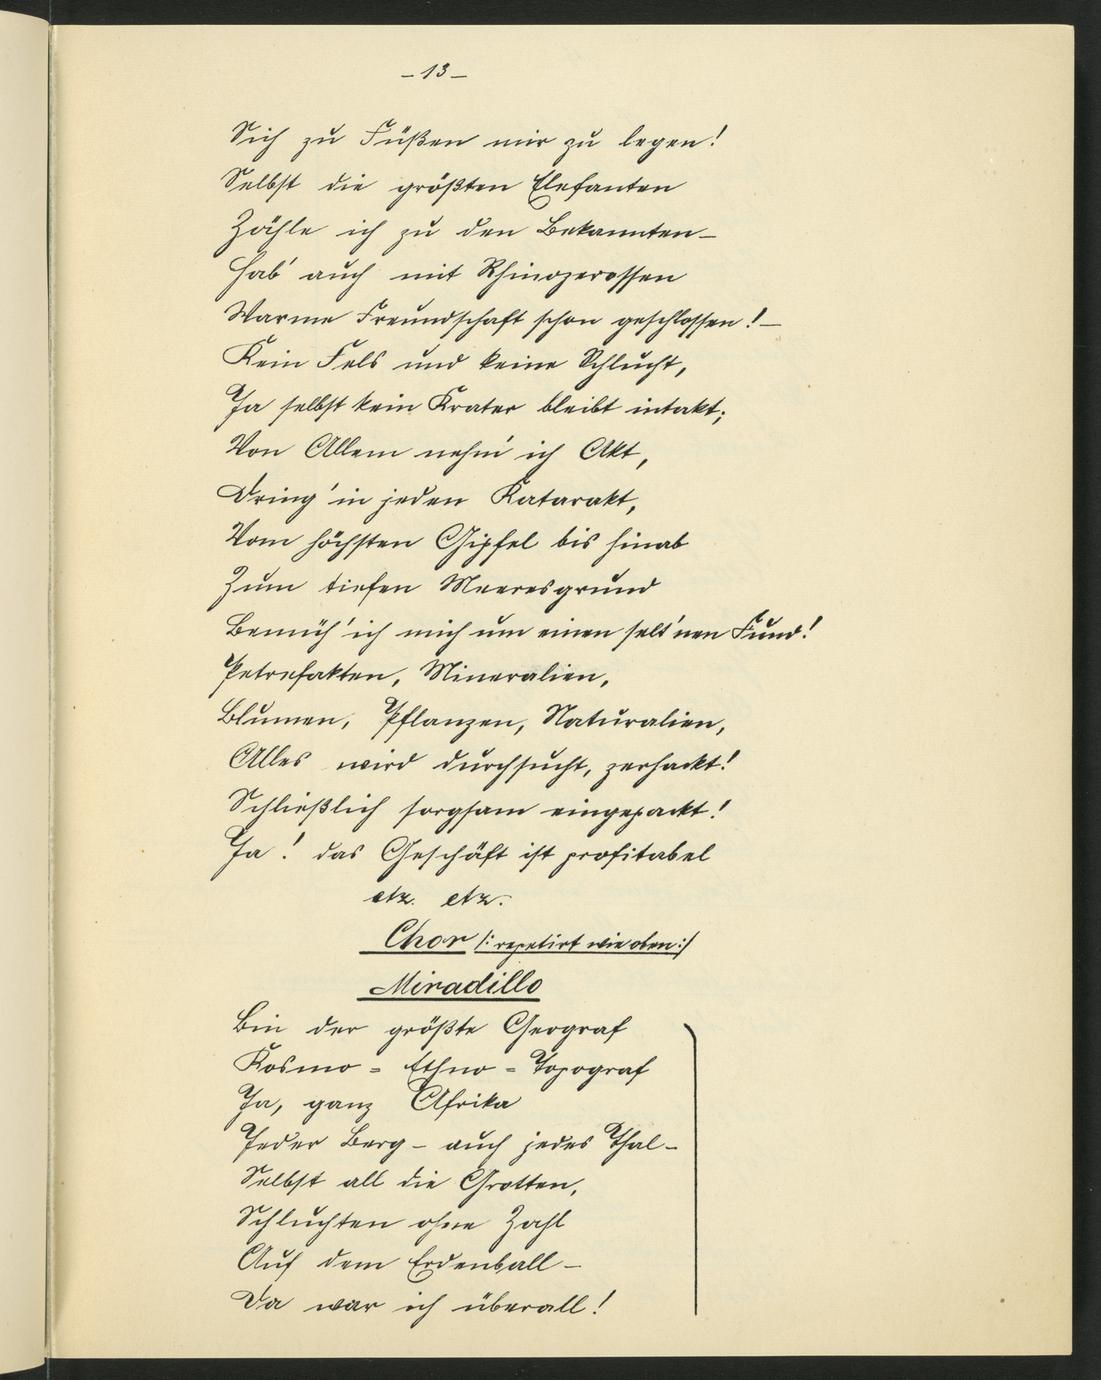 – 13 –
Sich zu Füßen mir zu legen!
Selbst die größten Elefanten
Zähle ich zu den Bekannten –
Hab' auch mit Rhinozerossen
Warme Freundschaft schon geschlossen! –
Kein Fels und keine Schlucht,
Ja selbst kein Krater bleibt intakt;
Von Allem nehm' ich Akt,
Dring' in jeden Katarakt,
Vom höchsten Gipfel bis hinab
Zum tiefen Meeresgrund
Bemüh' ich mich um einen selt'nen Fund!
Petrefakten, Mineralien,
Blumen, Pflanzen, Naturalien,
Alles wird durchsucht, zerhackt!
Schließlich sorgsam eingepackt!
Ja! das Geschäft ist profitabel
etz. etz.
Chor /: repetirt wie oben :/
Miradillo
Bin der größte Geograf
Kosmo = Ethno = Topograf
Ja, ganz Afrika
Jeder Berg – auch jedes Thal –
Selbst all die Grotten,
Schluchten ohne Zahl
Auf dem Erdenball –
Da war ich überall!